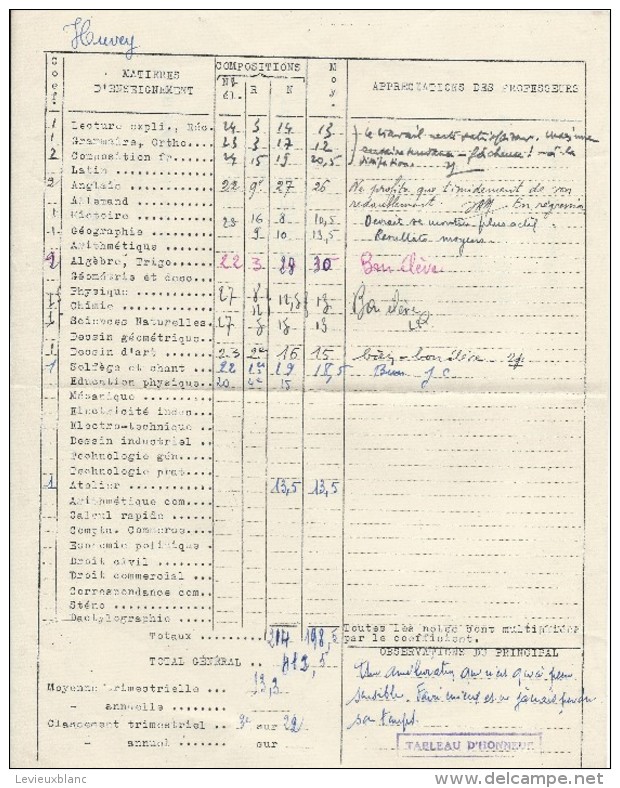 Huvey
Coef. MATIERES D'ENSEIGNEMENT COMPOSITIONS Nb él. R N Moy. APPRECIATIONS DES PROFESSEURS
1 Lecture expli., Réc. 24 5 14 13 Le travail reste satisfaisant, mais une
1 Grammaire, Ortho... 23 3 17 12
2 Composition fr... 24 15 19 20,5
Latin ...
2 Anglais ... 22 9e 27 26 Ne profite que timidement de son
Allemand ... redoublement. En régression
1 Histoire ... 23 16 8 10,5 Devrait se montrer plus actif.
1 Géographie ... 9 10 13,5 Résultats moyens
Arithmétique ...
2 Algèbre, Trigo... 22 3 28 30 Bon élève
Géométrie et desc.
Physique ... 27 8 12,5 13 Bon élève
Chimie ... 12
1 Sciences Naturelles. 27 13
Dessin géométrique..
1 Dessin d'art ... 23 2e 16 15 bon élève
1 Solfège et chant ... 22 19 18,5 Bien J.C
Education physique. 20 4e 15
Mécanique ...
Electricité indus...
Electro-technique ..
Dessin industriel ..
Technologie gén....
Technologie prat...
1 Atelier ... 13,5 13,5
Arithmétique com...
Calcul rapide ...
Compta. Commerc...
Economie politique .
Droit civil ...
Droit commercial ...
Correspondance com.
Sténo ...
Dactylographie ...
Totaux ... 214 198,5 Toutes les notes sont multipliées
par le coefficient.
TOTAL GÉNÉRAL .. 412,5 OBSERVATIONS DU PRINCIPAL
Moyenne trimestrielle ... 13,3 Une amélioration qui n'est qu'à peine
- annuelle ... sensible.
Classement trimestriel .. 3e sur 22 son temps.
- annuel ... sur
TABLEAU D'HONNEUR
Levieuxblanc
delcampe.net